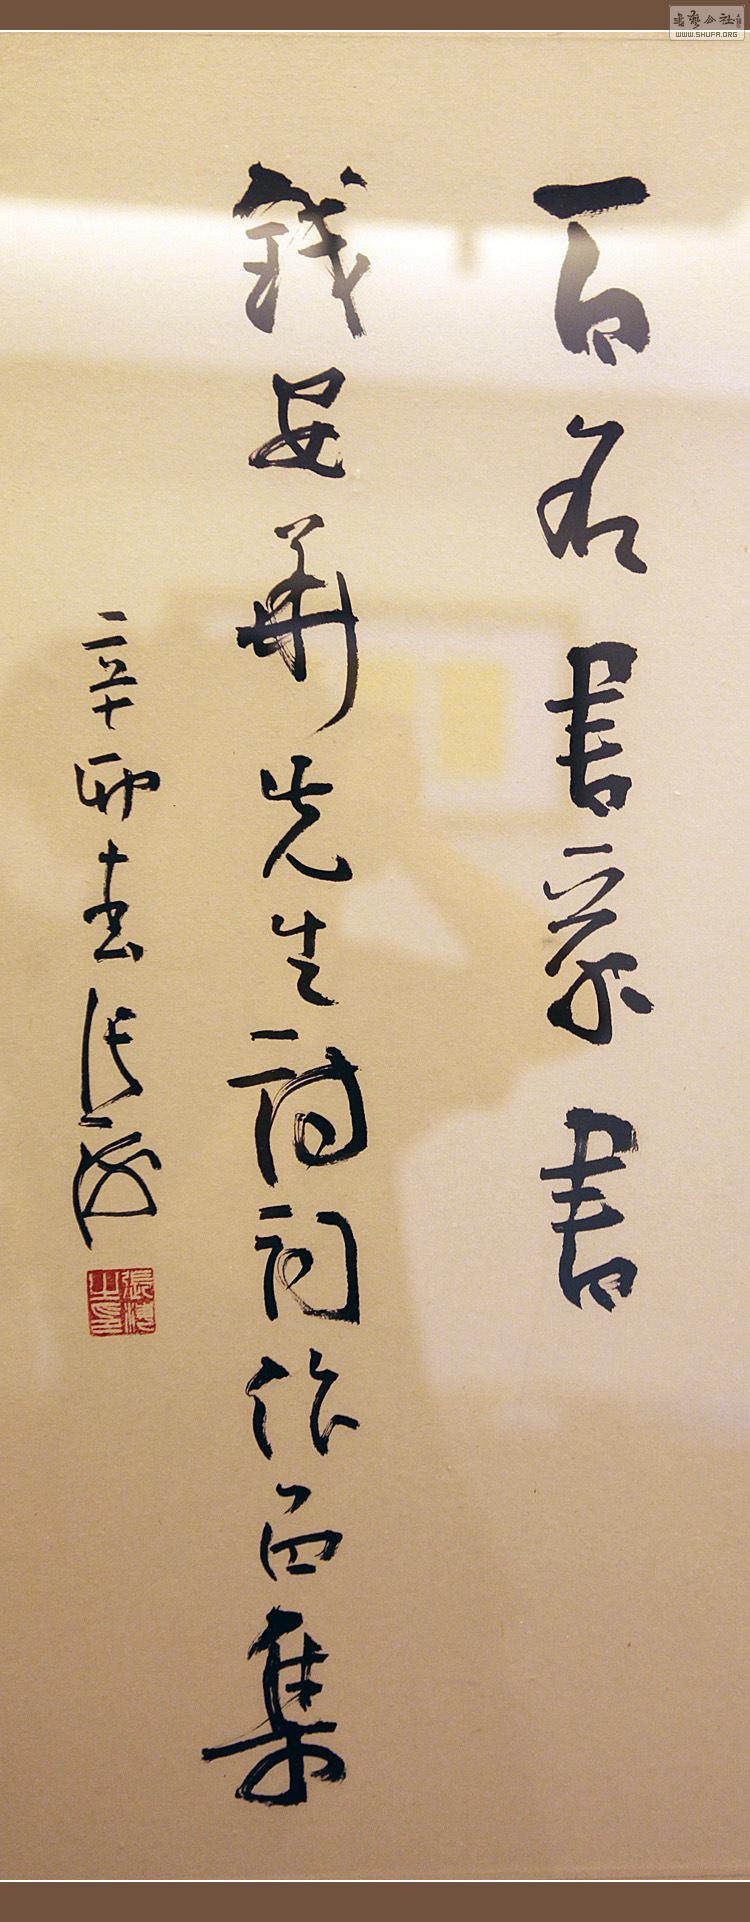 百名書家書
錢安華先生詩詞作品集
辛卯春張海
張海之印
書藝公社
WWW.SHUFA.ORG